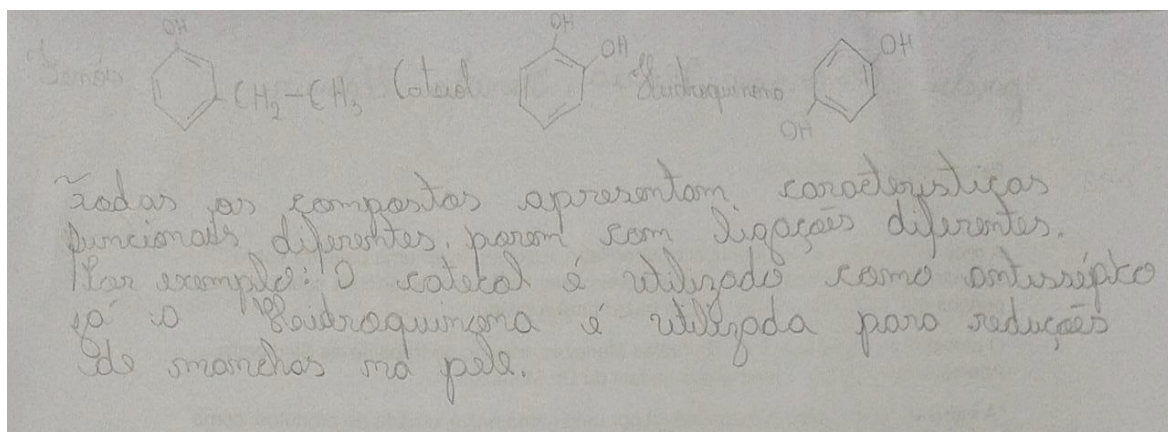 Fenóis OH CH₂-CH₃ Catecol OH OH Hidroquinona OH OH
Todas os compostos apresentam características
funcionais diferentes, porem com ligações diferentes.
Por exemplo: O catecol é utilizado como antisséptco
já o Hidroquinona é utilizada para reduções
de manchas na pele.